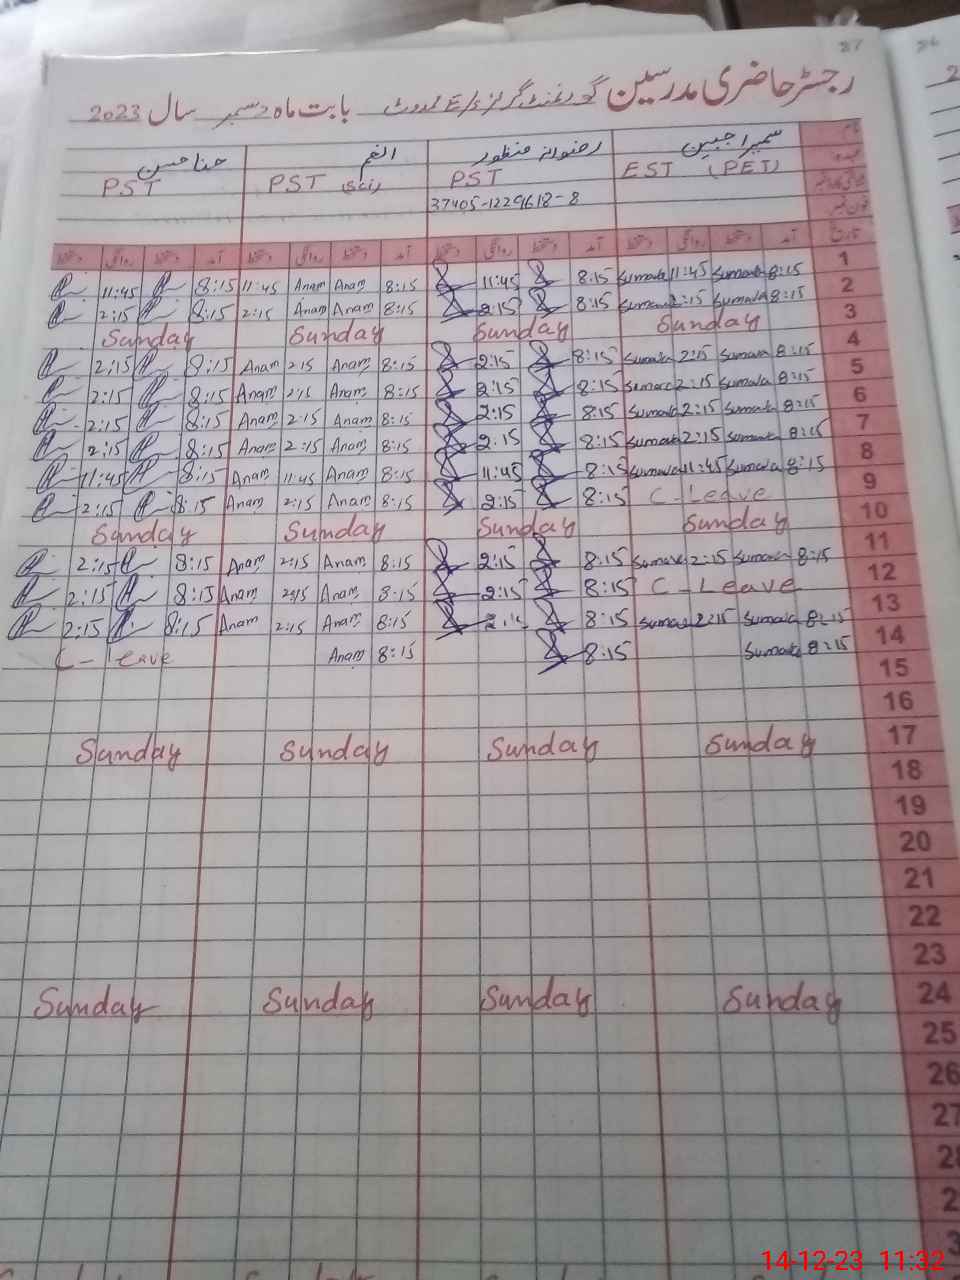 87
رجسٹر حاضری مدرسین گورنمنٹ گرلز بابت ماہ دسمبر سال 2023
نام سمیرا جبین رضوانہ منظور انعم حنا حسن
عہدہ EST (PET) PST PST PST
37405-1229618-8
فون نمبر
تاریخ آمد دستخط روانگی دستخط آمد دستخط روانگی دستخط آمد دستخط روانگی دستخط آمد دستخط روانگی دستخط
1 8:15 Sumaira 11:45 Sumaira 8:15 11:45 8:15 Anam Anam 11:45 8:15 11:45
2 8:15 Sumaira 2:15 Sumaira 8:15 2:15 8:15 Anam Anam 2:15 8:15 2:15
3 Sunday Sunday Sunday Sunday
4 8:15 Sumaira 2:15 Sumaira 8:15 2:15 8:15 Anam 2:15 Anam 8:15 2:15
5 8:15 Sumaira 2:15 Sumaira 8:15 2:15 8:15 Anam 2:15 Anam 8:15 2:15
6 8:15 Sumaira 2:15 Sumaira 8:15 2:15 8:15 Anam 2:15 Anam 8:15 2:15
7 8:15 Sumaira 2:15 Sumaira 8:15 2:15 8:15 Anam 2:15 Anam 8:15 2:15
8 8:15 Sumaira 11:45 Sumaira 8:15 11:45 8:15 Anam 11:45 Anam 8:15 11:45
9 C-Leave 8:15 2:15 8:15 Anam 2:15 Anam 8:15 2:15
10 Sunday Sunday Sunday Sunday
11 8:15 Sumaira 2:15 Sumaira 8:15 2:15 8:15 Anam 2:15 Anam 8:15 2:15
12 C-Leave 8:15 2:15 8:15 Anam 2:15 Anam 8:15 2:15
13 8:15 Sumaira 2:15 Sumaira 8:15 8:15 Anam 2:15 Anam 8:15 2:15
14 8:15 Sumaira 8:15 8:15 Anam C-Leave
15
16
17 Sunday Sunday Sunday Sunday
18
19
20
21
22
23
24 Sunday Sunday Sunday Sunday
25
26
27
14-12-23 11:32